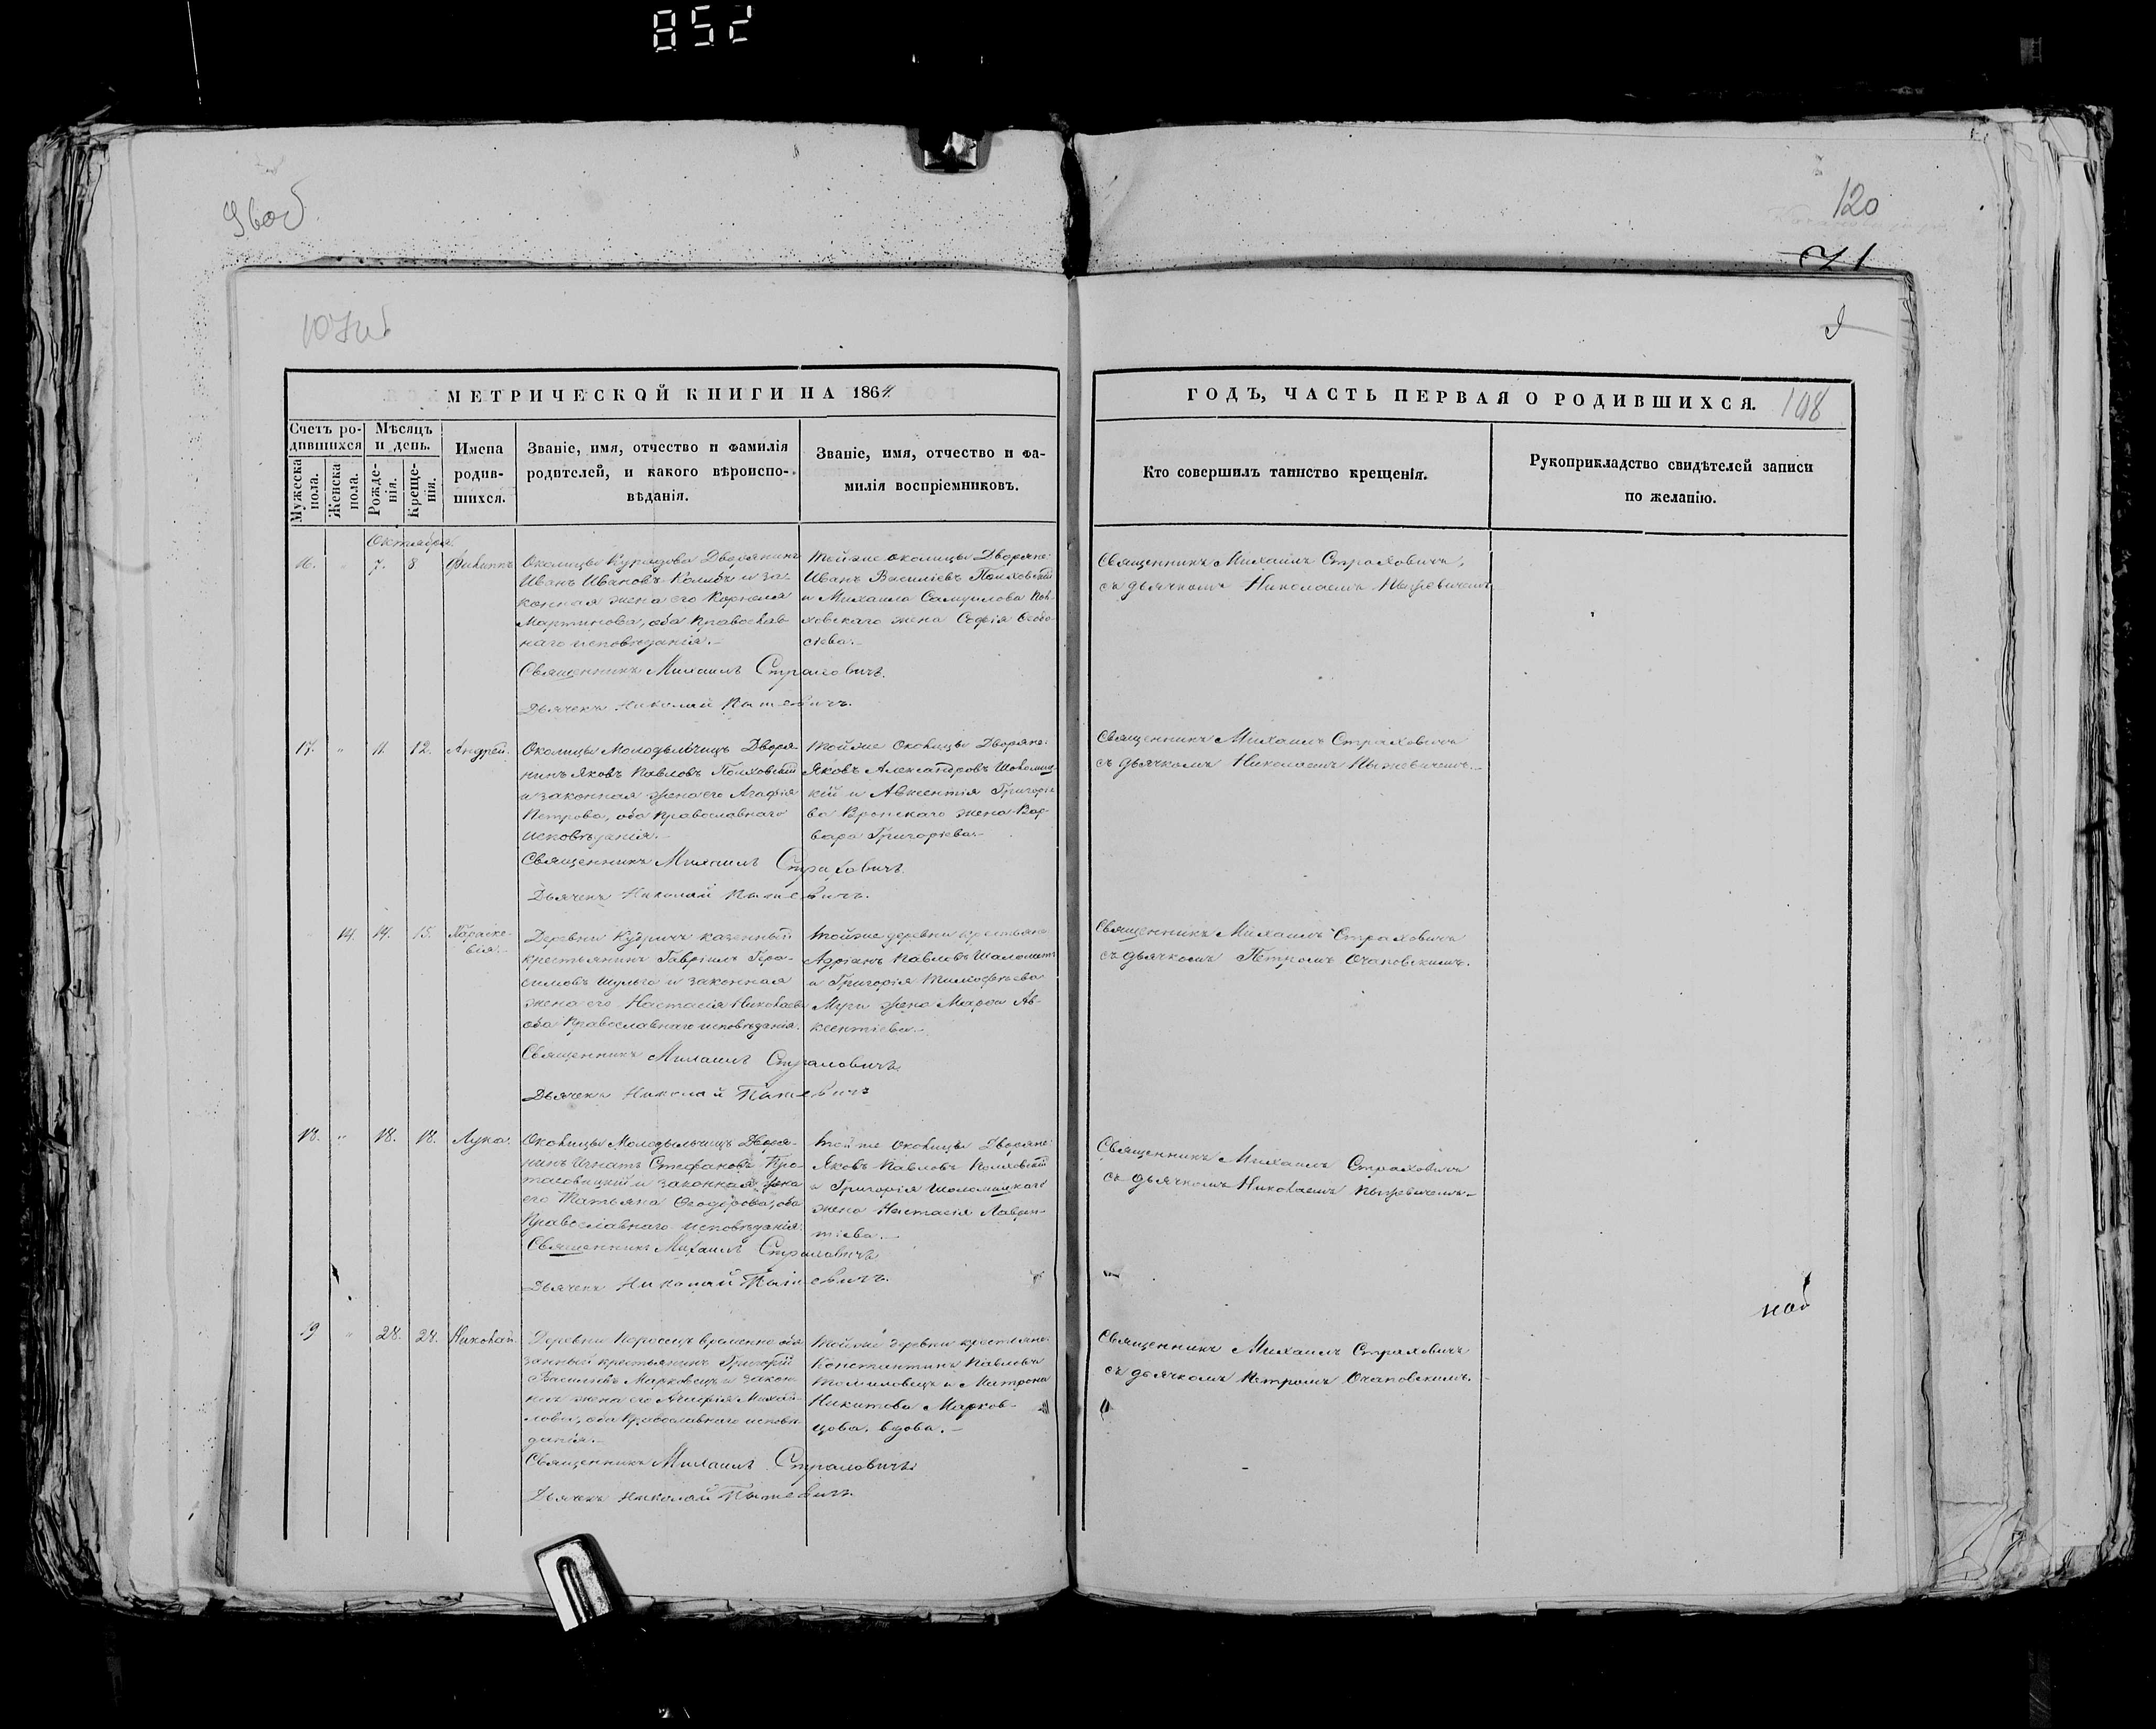 852
96об
120
71
107об
9
МЕТРИЧЕСКОЙ КНИГИ НА 1864
ГОДЪ, ЧАСТЬ ПЕРВАЯ О РОДИВШИХСЯ.
108
Счетъ ро-
дившихся
Мужеска
пола.
Женска
пола.
Мѣсяцъ
и день.
Рожде-
нія.
Креще-
нія.
Имена
родив-
шихся.
Званіе, имя, отчество и фамилія
родителей, и какого вѣроиспо-
вѣданія.
Званіе, имя, отчество и фа-
милія воспріемниковъ.
Кто совершилъ таинство крещенія.
Рукоприкладство свидѣтелей записи
по желанію.
Октября
16. " 7. 8 Филиппъ
Околицы Купядова Дворянинъ
Иванъ Ивановъ и за-
конная жена его Корнеля
Мартинова, оба Православ
наго исповѣданія.-
Священникъ Михаилъ Страховичъ.
Дьячекъ Николай
Тойже околицы Дворяне:
Иванъ Василіевъ Полховскій
и Михаила Самуилова Пол-
ховскаго жена Софія Ѳеодо-
сіева.-
Священникъ Михаилъ Страховичъ,
съ дьячкомъ Николаемъ
17. " 11. 12. Андрей.
Околицы Молодыльчицъ Дворя-
нинъ Яковъ Павловъ Полховскій
и законная жена его Агафія
Петрова, оба Православнаго
исповѣданія.-
Священникъ Михаилъ Страховичъ.
Дьячекъ Николай
Тойже Околицы Дворяне:
Яковъ Александровъ Шоломиц-
кій и Авксентія Григоріе
ва Вронскаго жена Вар-
вара Григоріева.-
Священникъ Михаилъ Страховичъ
съ дьячкомъ Николаемъ
14. 14. 15. Параске-
вія.-
Деревни Кудричъ казенный
крестьянинъ Гавріилъ Гера-
симовъ Шульга и законная
жена его Настасія Николаева
оба Православнаго исповѣданія.
Священникъ Михаилъ Страховичъ.
Дьячекъ Николай
Тойже деревни крестьяне
Адріанъ Павловъ
и Григорія Тимофѣева
жена Марфа Ав-
ксентіева.-
Священникъ Михаилъ Страховичъ
съ дьячкомъ Петромъ Очаповскимъ.
18. " 18. 18. Лука.
Околицы Молодыльчицъ Дворя-
нинъ Игнатъ Стефановъ Про-
тасовицкій и законная жена
его Татьяна Ѳеодорова, оба
Православнаго исповѣданія.
Священникъ Михаилъ Страховичъ
Дьячекъ Николай
Тойже Околицы Дворяне:
Яковъ Павловъ Полховскій
и Григорія Шоломицкаго
жена Настасія Лаврен-
тіева.-
Священникъ Михаилъ Страховичъ
съ дьячкомъ Николаемъ
19 " 28. 28. Николай.
Деревни временно обя
занный крестьянинъ Григорій
Василіевъ Марковецъ и закон
ная жена его Агафія Михай-
лова, оба Православнаго исповѣ
данія.-
Священникъ Михаилъ Страховичъ
Дьячекъ Николай
Тойже деревни крестьяне:
Константинъ Павловъ
Томиловецъ и Матрона
Никитова Марков-
цова, вдова.-
Священникъ Михаилъ Страховичъ
съ дьячкомъ Петромъ Очаповскимъ.